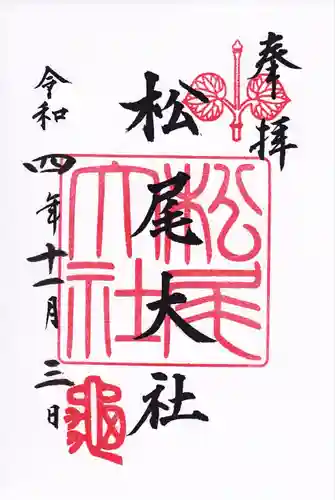 奉拝
松尾大社
令和四年十一月三日
松尾大社
亀